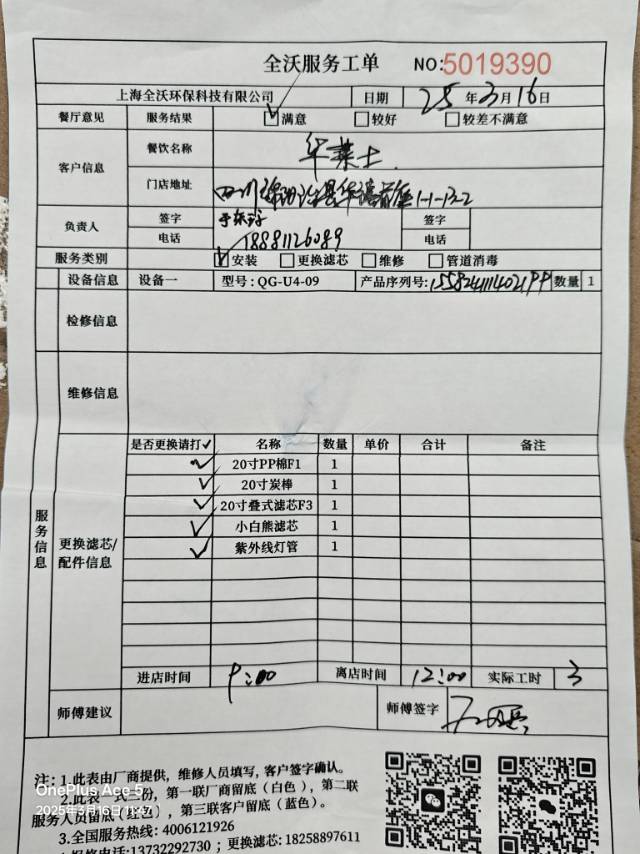 全沃服务工单 NO:5019390
上海全沃环保科技有限公司 日期 25年3月16日
餐厅意见 服务结果 ☑满意 □较好 □较差不满意
客户信息 餐饮名称 华莱士
门店地址 四川绵阳 县华 1-1-13-2
负责人 签字 签字
电话 18881126089 电话
服务类别 ☑安装 □更换滤芯 □维修 □管道消毒
设备信息 设备一 型号:QG-U4-09 产品序列号: 数量 1
检修信息
维修信息
服务信息
更换滤芯/配件信息
是否更换请打✓ 名称 数量 单价 合计 备注
✓ 20寸PP棉F1 1
✓ 20寸炭棒 1
✓ 20寸叠式滤芯F3 1
✓ 小白熊滤芯 1
✓ 紫外线灯管 1
进店时间 9:00 离店时间 12:00 实际工时 3
师傅建议 师傅签字
注:1.此表由厂商提供,维修人员填写,客户签字确认。
2.此表一式三份,第一联厂商留底(白色),第二联
服务人员留底(红色),第三联客户留底(蓝色)。
3.全国服务热线:4006121926
报修电话:13732292730;更换滤芯:18258897611
OnePlus Ace 5
2025年3月16日